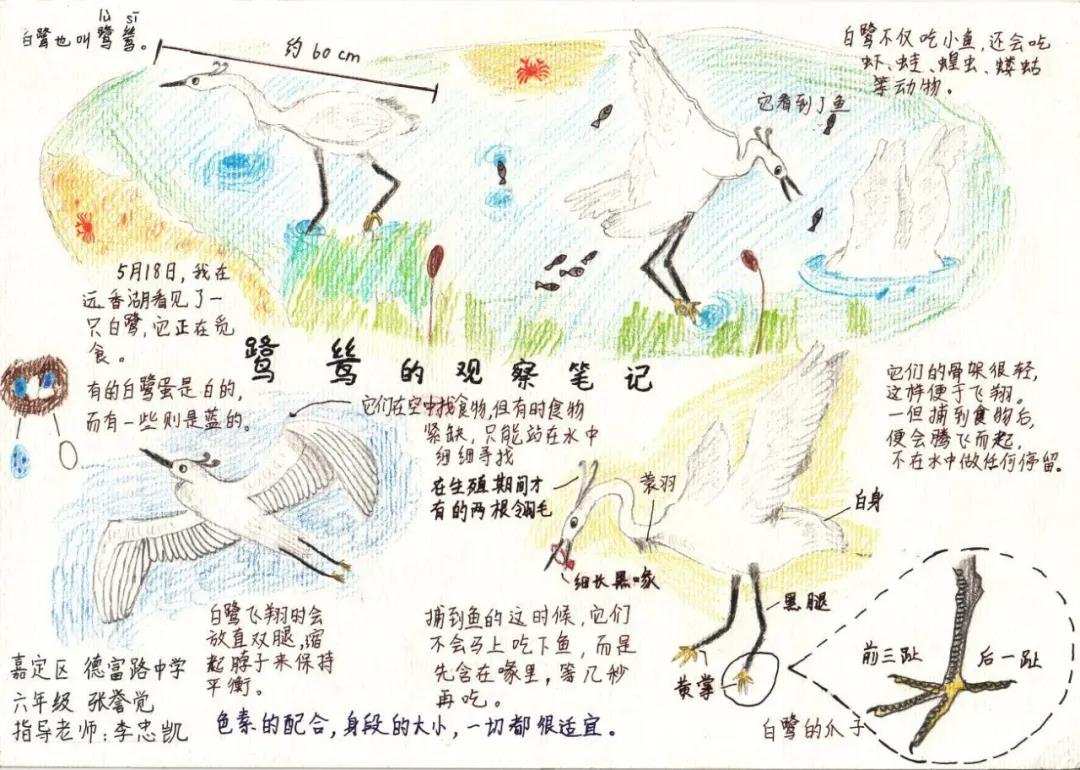 lù sī
白鹭也叫鹭鸶。
约60cm
白鹭不仅吃小鱼,还会吃
虾、蛙、蝗虫、蝼蛄
等动物。
它看到了鱼
5月18日,我在
远香湖看见了一
只白鹭,它正在觅
食。
鹭鸶的观察笔记
有的白鹭蛋是白的,
而有一些则是蓝的。
它们在空中找食物,但有时食物
紧缺,只能站在水中
细细寻找
它们的骨架很轻,
这样便于飞翔。
一但捕到食物后,
便会腾飞而起,
不在水中做任何停留。
在生殖期间才
有的两根翎毛
蓑羽
白身
细长黑喙
黑腿
黄掌
前三趾
后一趾
白鹭的爪子
白鹭飞翔时会
放直双腿,缩
起脖子来保持
平衡。
捕到鱼的这时候,它们
不会马上吃下鱼,而是
先含在喙里,等几秒
再吃。
嘉定区 德富路中学
六年级 张誉觉
指导老师:李忠凯
色素的配合,身段的大小,一切都很适宜。